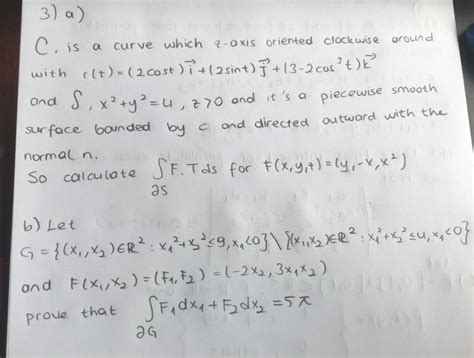 3) a)
C, is a curve which z-axis oriented clockwise around
with r(t)=(2cost)i⃗+(2sint)j⃗+(3-2cos³t)k⃗
and S, x²+y²=4, z>0 and it's a piecewise smooth
surface bounded by c and directed outward with the
normal n.
So calculate ∫F.Tds for f(x,y,t)=(y,-x,x²)
∂S
b) Let
G={(x₁,x₂)∈ℝ²: x₁²+x₂²≤9,x₁<0}\{(x₁,x₂)∈ℝ²: x₁²+x₂²≤4,x₁≤0}
and F(x₁,x₂)=(F₁,F₂)=(-2x₂, 3x₁x₂)
prove that ∫F₁dx₁+F₂dx₂=5π
∂G